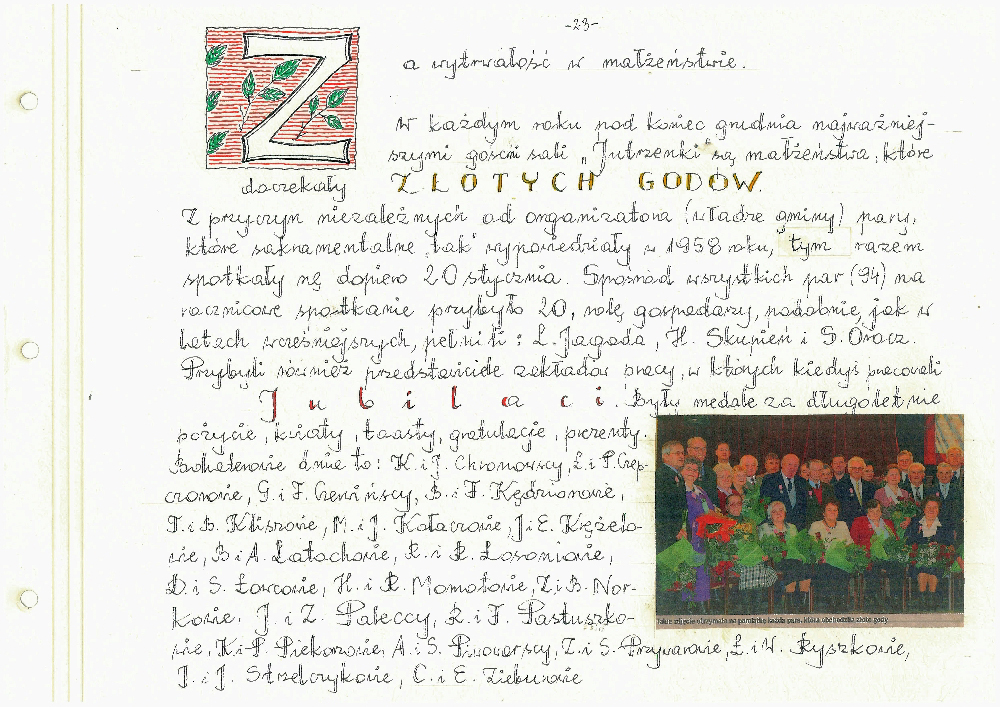 -23-
Z
a wytrwałość w małżeństwie.
W każdym roku pod koniec grudnia najważniej-
szymi gośćmi sali „Jutrzenki" są małżeństwa, które
doczekały ZŁOTYCH GODÓW.
Z przyczyn niezależnych od organizatora (władze gminy) pary,
które sakramentalne „tak" wypowiedziały w 1958 roku, tym razem
spotkały się dopiero 20 stycznia. Spośród wszystkich par (94) na
rocznicowe spotkanie przybyło 20, rolę gospodarzy, podobnie, jak w
latach wcześniejszych, pełnili: L. Jagoda, H. Skupień i S. Oracz.
Przybyli również przedstawiciele zakładów pracy, w których kiedyś pracowali
Jubilaci. Były medale za długoletnie
pożycie, kwiaty, toasty, gratulacje, prezenty.
Bohaterowie dnia to: K. i J. Chronowscy, L. i P. Czep-
czorowie, G. i F. Czerwińscy, B. i F. Kędziorowie,
T. i B. Kliszowie, M. i J. Kołaczowie, J. i E. Krężelo-
wie, B. i A. Latochowie, R. i R. Łosoniowie,
D. i S. Łowcowie, H. i R. Momotowie, Z. i B. Nor-
kowie, J. i Z. Pałeccy, R. i F. Pastuszko-
wie, K. i P. Piekarzowie, A. i S. Piwowarscy, Z. i S. Przywarowie, L. i W. Ryszkowie,
J. i J. Strzelczykowie, C. i E. Zieburowie
Takie zdjęcie otrzymała na pamiątkę każda para, która obchodziła złote gody